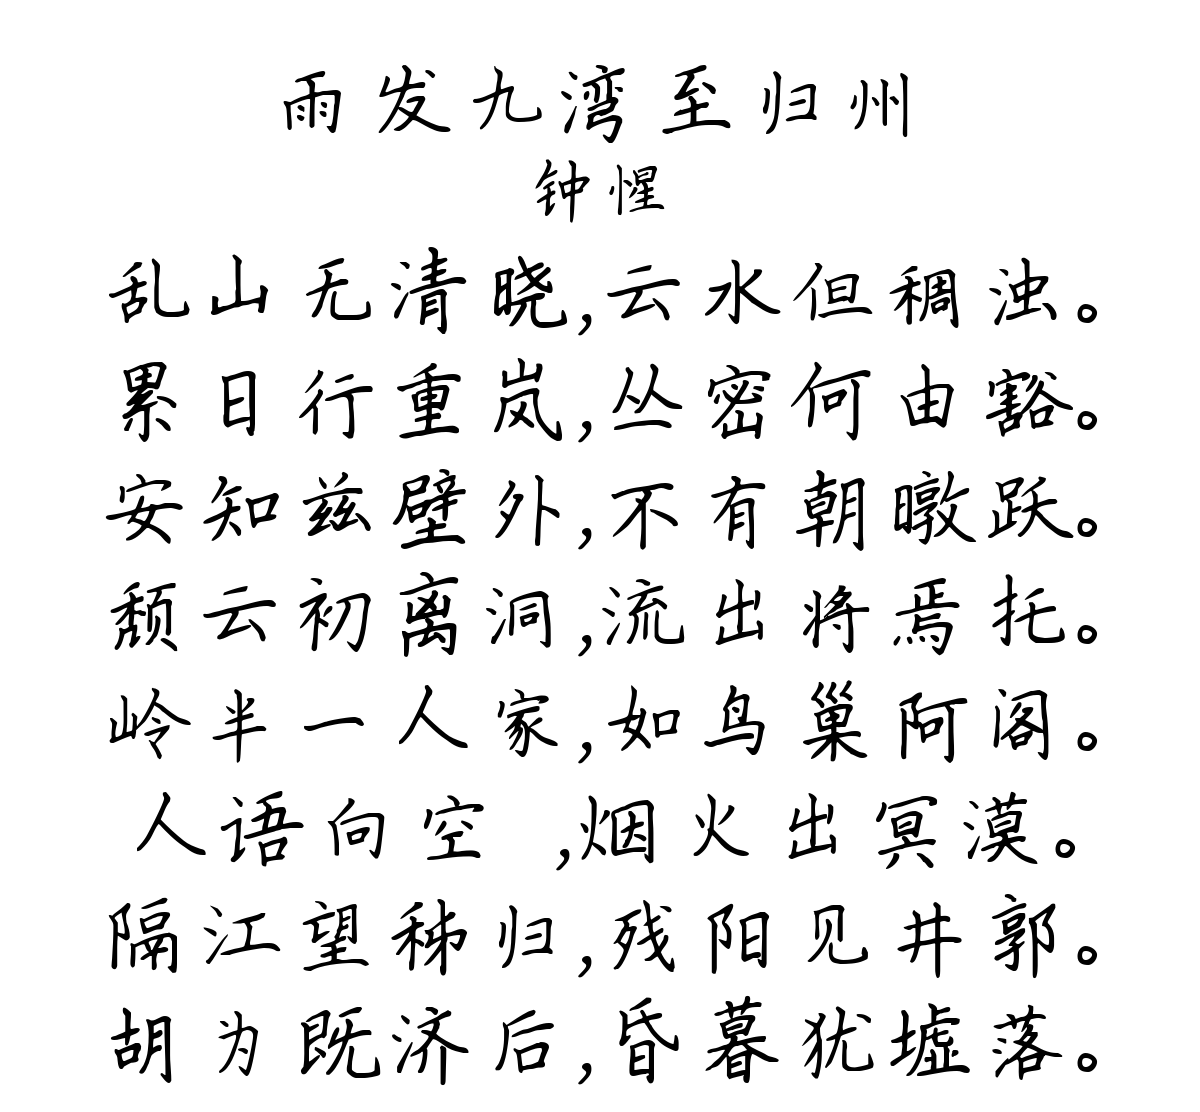 雨发九湾至归州
钟惺
乱山无清晓,云水但稠浊。
累日行重岚,丛密何由豁。
安知兹壁外,不有朝暾跃。
颓云初离洞,流出将焉托。
岭半一人家,如鸟巢阿阁。
人语向空 ,烟火出冥漠。
隔江望秭归,残阳见井郭。
胡为既济后,昏暮犹墟落。